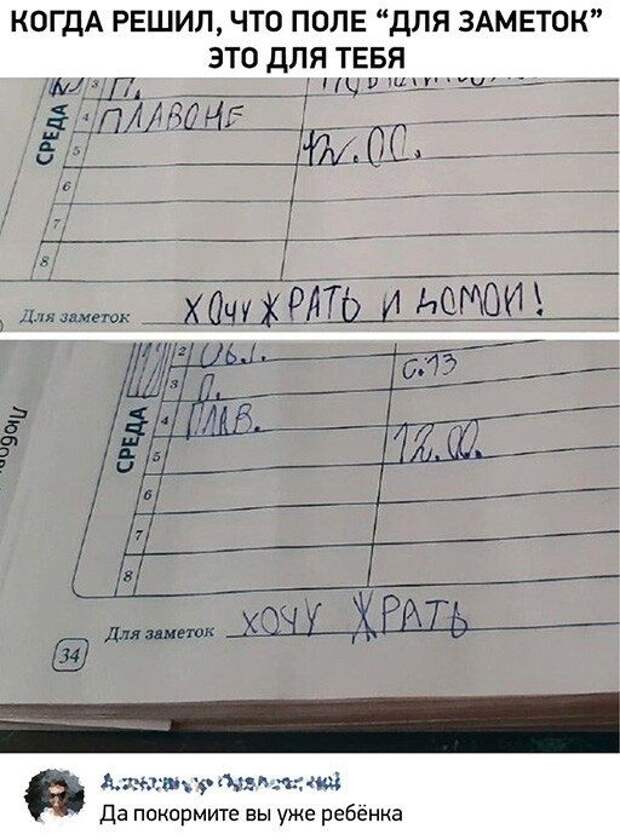 КОГДА РЕШИЛ, ЧТО ПОЛЕ “ДЛЯ ЗАМЕТОК”
ЭТО ДЛЯ ТЕБЯ
3 П.
СРЕДА
4 ПЛАВОНЕ
5 12.00.
6
7
8
Для заметок ХОЧУ ЖРАТЬ И ДОМОЙ!
2 с.13
3 П.
СРЕДА
4 ПЛАВ.
5 12.00.
6
7
8
Для заметок ХОЧУ ЖРАТЬ
34
Да покормите вы уже ребёнка